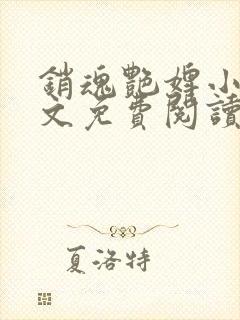 銷魂艷婬小
文免費閱讀
夏洛特